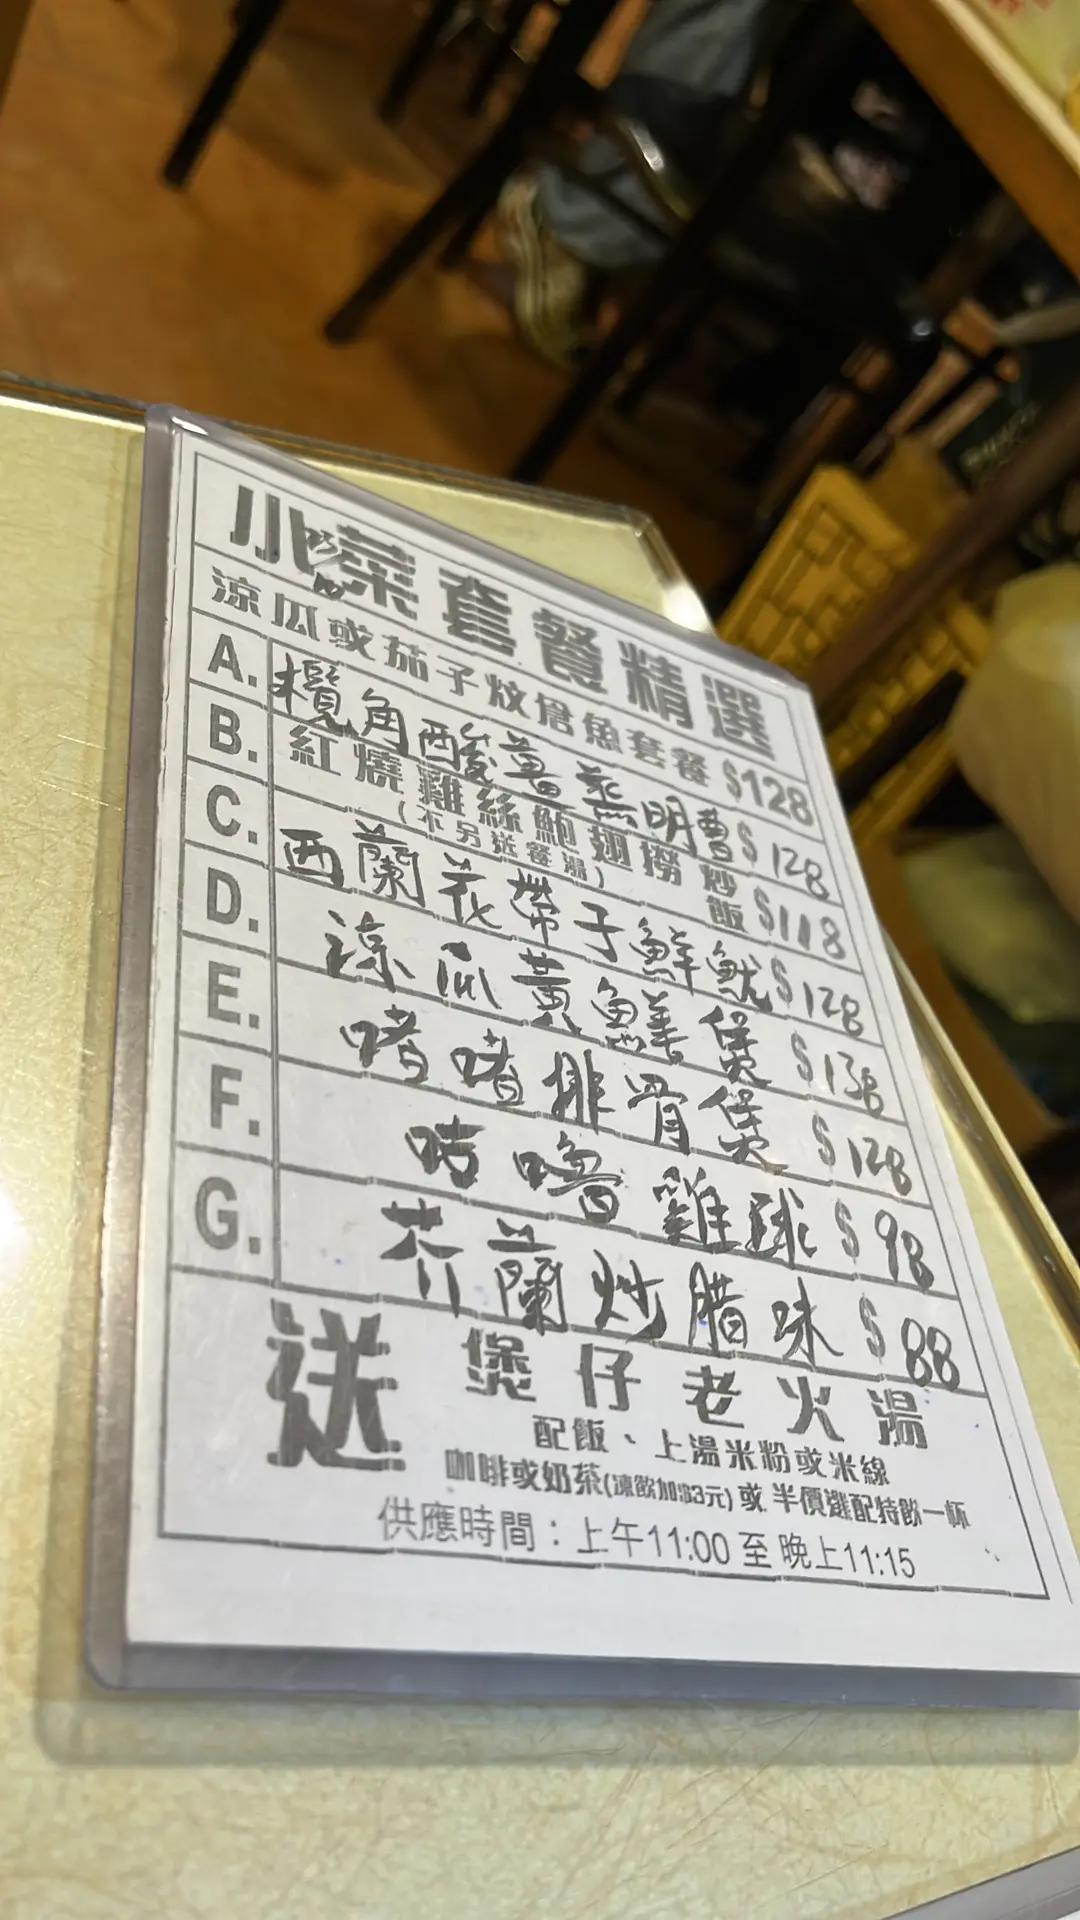 小菜套餐精選
涼瓜或茄子炆倉魚套餐 $128
A. 欖角酸薑蒸明曹 $128
B. 紅燒雞絲鮑翅撈炒飯 $118
(不另送餐湯)
C. 西蘭花帶子鮮魷 $128
D. 涼瓜黃鱔煲 $138
E. 啫啫排骨煲 $128
F. 咕嚕雞球 $98
G. 芥蘭炒腊味 $88
送 煲仔老火湯
配飯、上湯米粉或米線
咖啡或奶茶(凍飲加$3元)或半價選配特飲一杯
供應時間：上午11:00至晚上11:15